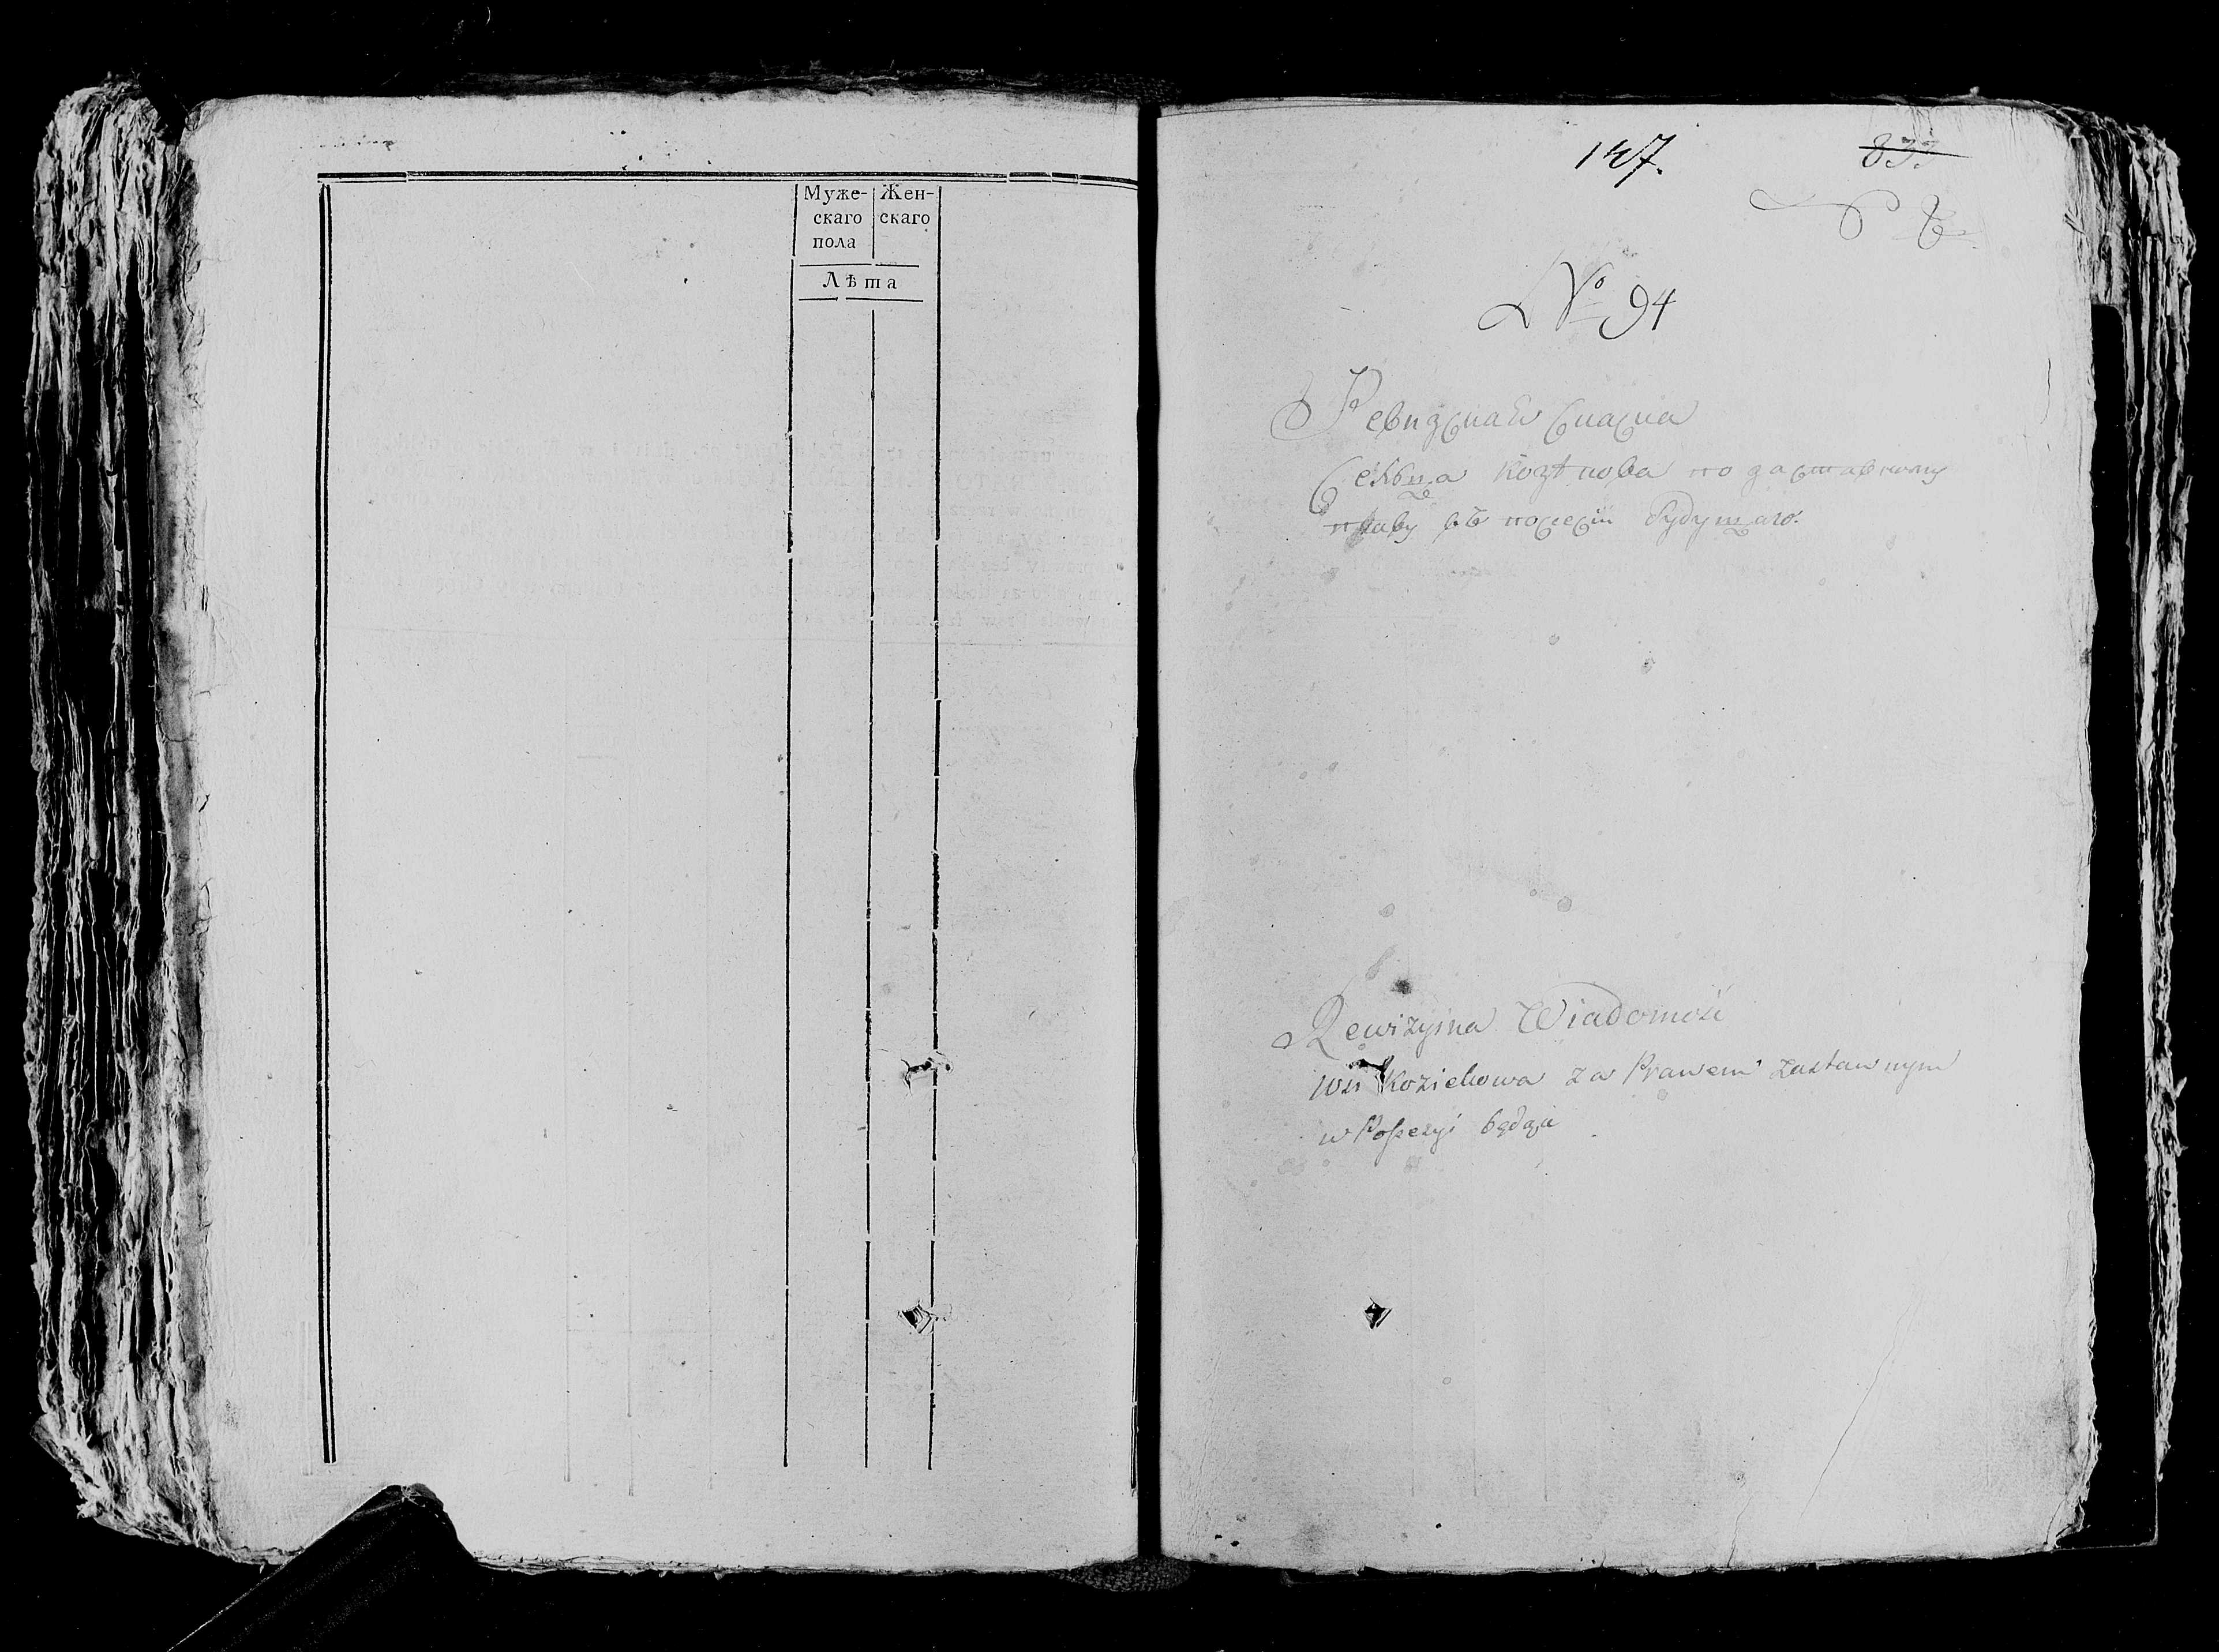 Муже-
скаго
пола
Жен-
скаго
Лѣта
147.
833
№ 94
Ревизская Сказка
Селца по заставному
праву въ посесіи будущаго.
Rewizyina Wiadomość
Wsi Kozichowa za Prawem zastawnym
w Possesyi będąca